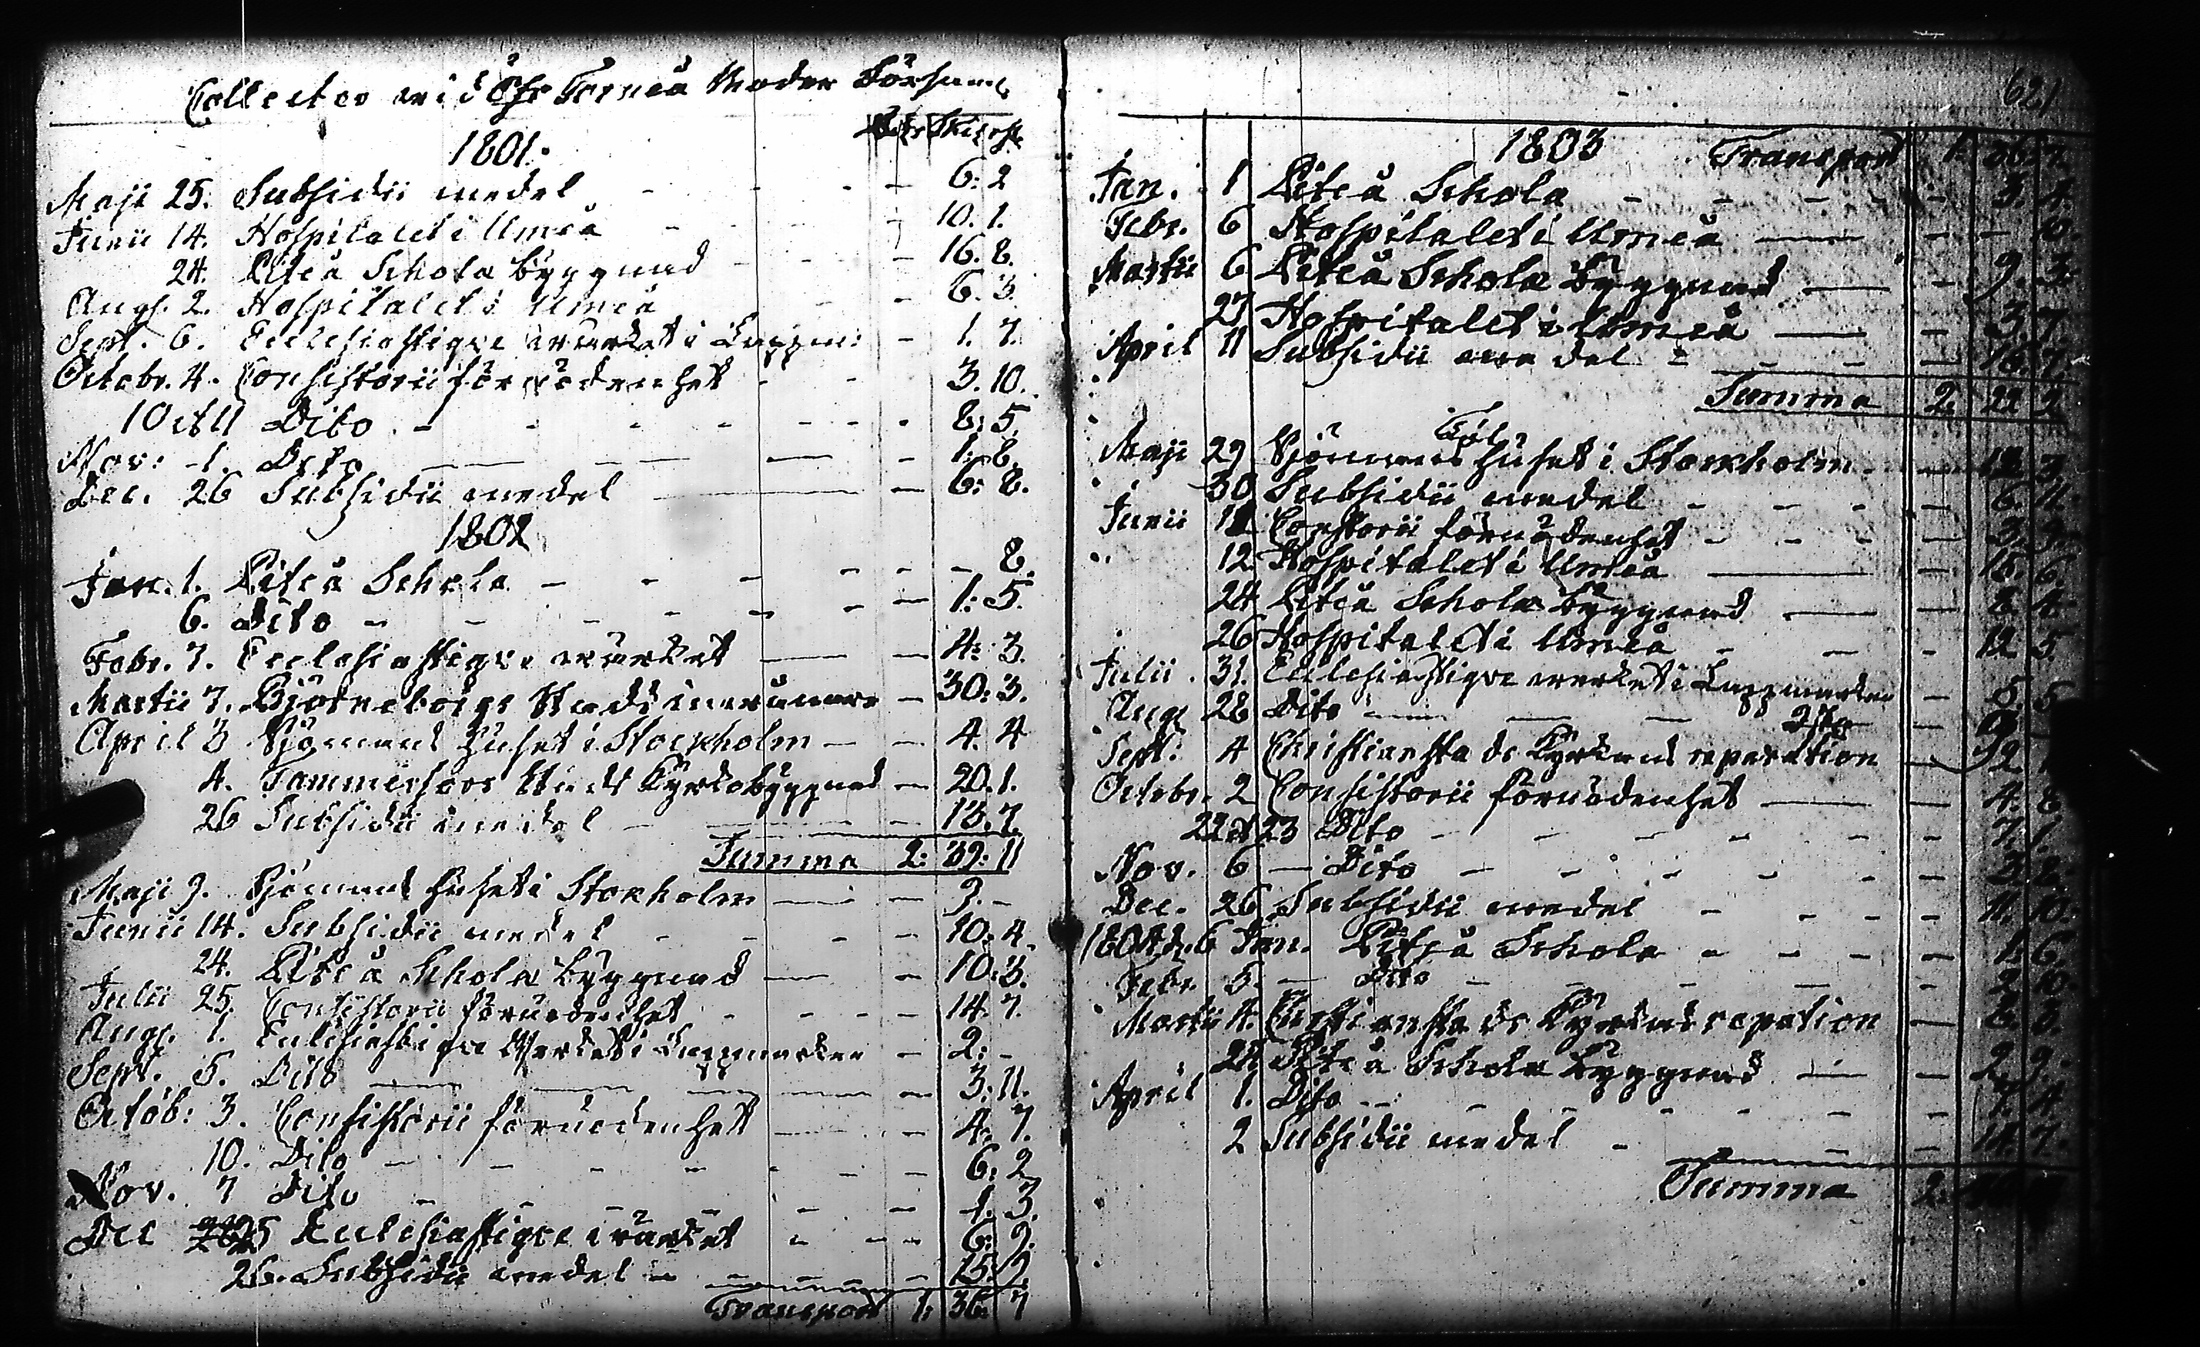 Collecter wid Öfr Torneå Moder Församl
Rdr Skil rst
1801.
Maji 25. Subsidii medel - - - - 6: 2
Junii 14. Hospitalet i Umeå - - - 10. 1.
24. Piteå Schola byggnad - - - 16. 8.
Augs. 2. Hospitalet i Umeå - - - 6. 3.
Sept. 6. Ecclesiastique wärket i Lappm: - 1. 7.
Octobr. 4. Consistorii förnödenhet - - 3. 10.
10 et 11 Dito - - - - - - 8: 5.
Nov: 1. Dito - - - - 1: 6.
Dec. 26 Subsidii medel - - 6: 8.
1802
Jan. 1. Piteå Schola - - - - - - 8.
6. Dito - - - - - - 1: 5.
Febr. 7. Ecclesiastique wärket - - 4: 3.
Martii 7. Björneborgs Stads inwånare - 30: 3.
April 3 Sjömans Huset i Stockholm - - 4. 4
4. Tammerfors Stads Kyrkobyggnad - 20. 1.
26 Subsidii medel - - - 13. 7.
Summa 2: 39: 11
Maji 9. Sjömans Huset i Stokholm - - 9. -
Junii 14. Subsidii medel - - - - 10. 4.
24. Piteå Schola byggnad - - 10: 3.
Julii 25. Consistorii förnödenhet - - - - 14. 7.
Augs. 1. Ecclesiastique Werket i Lappmarken - 2: -
Sept. 5. Dito - - - - 3: 11.
Octob: 3. Consistorii förnödenhet - - 4. 7.
10. Dito - - - - - - 6: 2
Nov. 7 Dito - - - - - 1: 3.
Dec 25 Ecclesiastique wärket - - - 6: 9.
26. Subsidii medel - - - - - 15: 9.
Transport 1: 36: 7
621
1803 Transport 1: 36. 7.
Jan. 1 Piteå Schola - - - - - 3. 4.
Febr. 6 Hospitalet i Umeå - - -
Martii 6 Piteå Schola byggnad - - 9. 3.
27 Hospitalet i Umeå - - 3. 7.
April 11 Subsidii medel - - - -
Summa 2. 22 2
Maji 29 Sjömans Huset i Stockholm - -
30 Subsidii medel - - - - 6. 11.
Junii Constorii förnödenhet - - - -
12 Hospitalet i Umeå - - 6.
24 Piteå Schola byggnad - - 8. 4.
26 Hospitalet i Umeå - - - 12 5.
Julii 31. Ecclesiastique werket i Lappmarken - 5. 5
Aug 28 Dito - - -
Sept. 4 Christianstads Kyrkans reparation
Octobr. 2 Consistorii förnödenhet - - 4. 8
22 et 23 Dito - - - - - 7. 1.
Nov. 6 - Dito - - - - -
Dec. 26 Subsidii medel - - - - 11. 10.
1804 d. 6 Jan. Piteå Schola - - - - 1. 6.
Febr. 5. - Dito - - - -
Martii 4. Christianstads Kyrkans repation - 8. 8.
Piteå Schola byggnad - - 2. 9.
April 1. Dito - - - - - - 4
2 Subsidii medel - - - 7.
Summa 2.